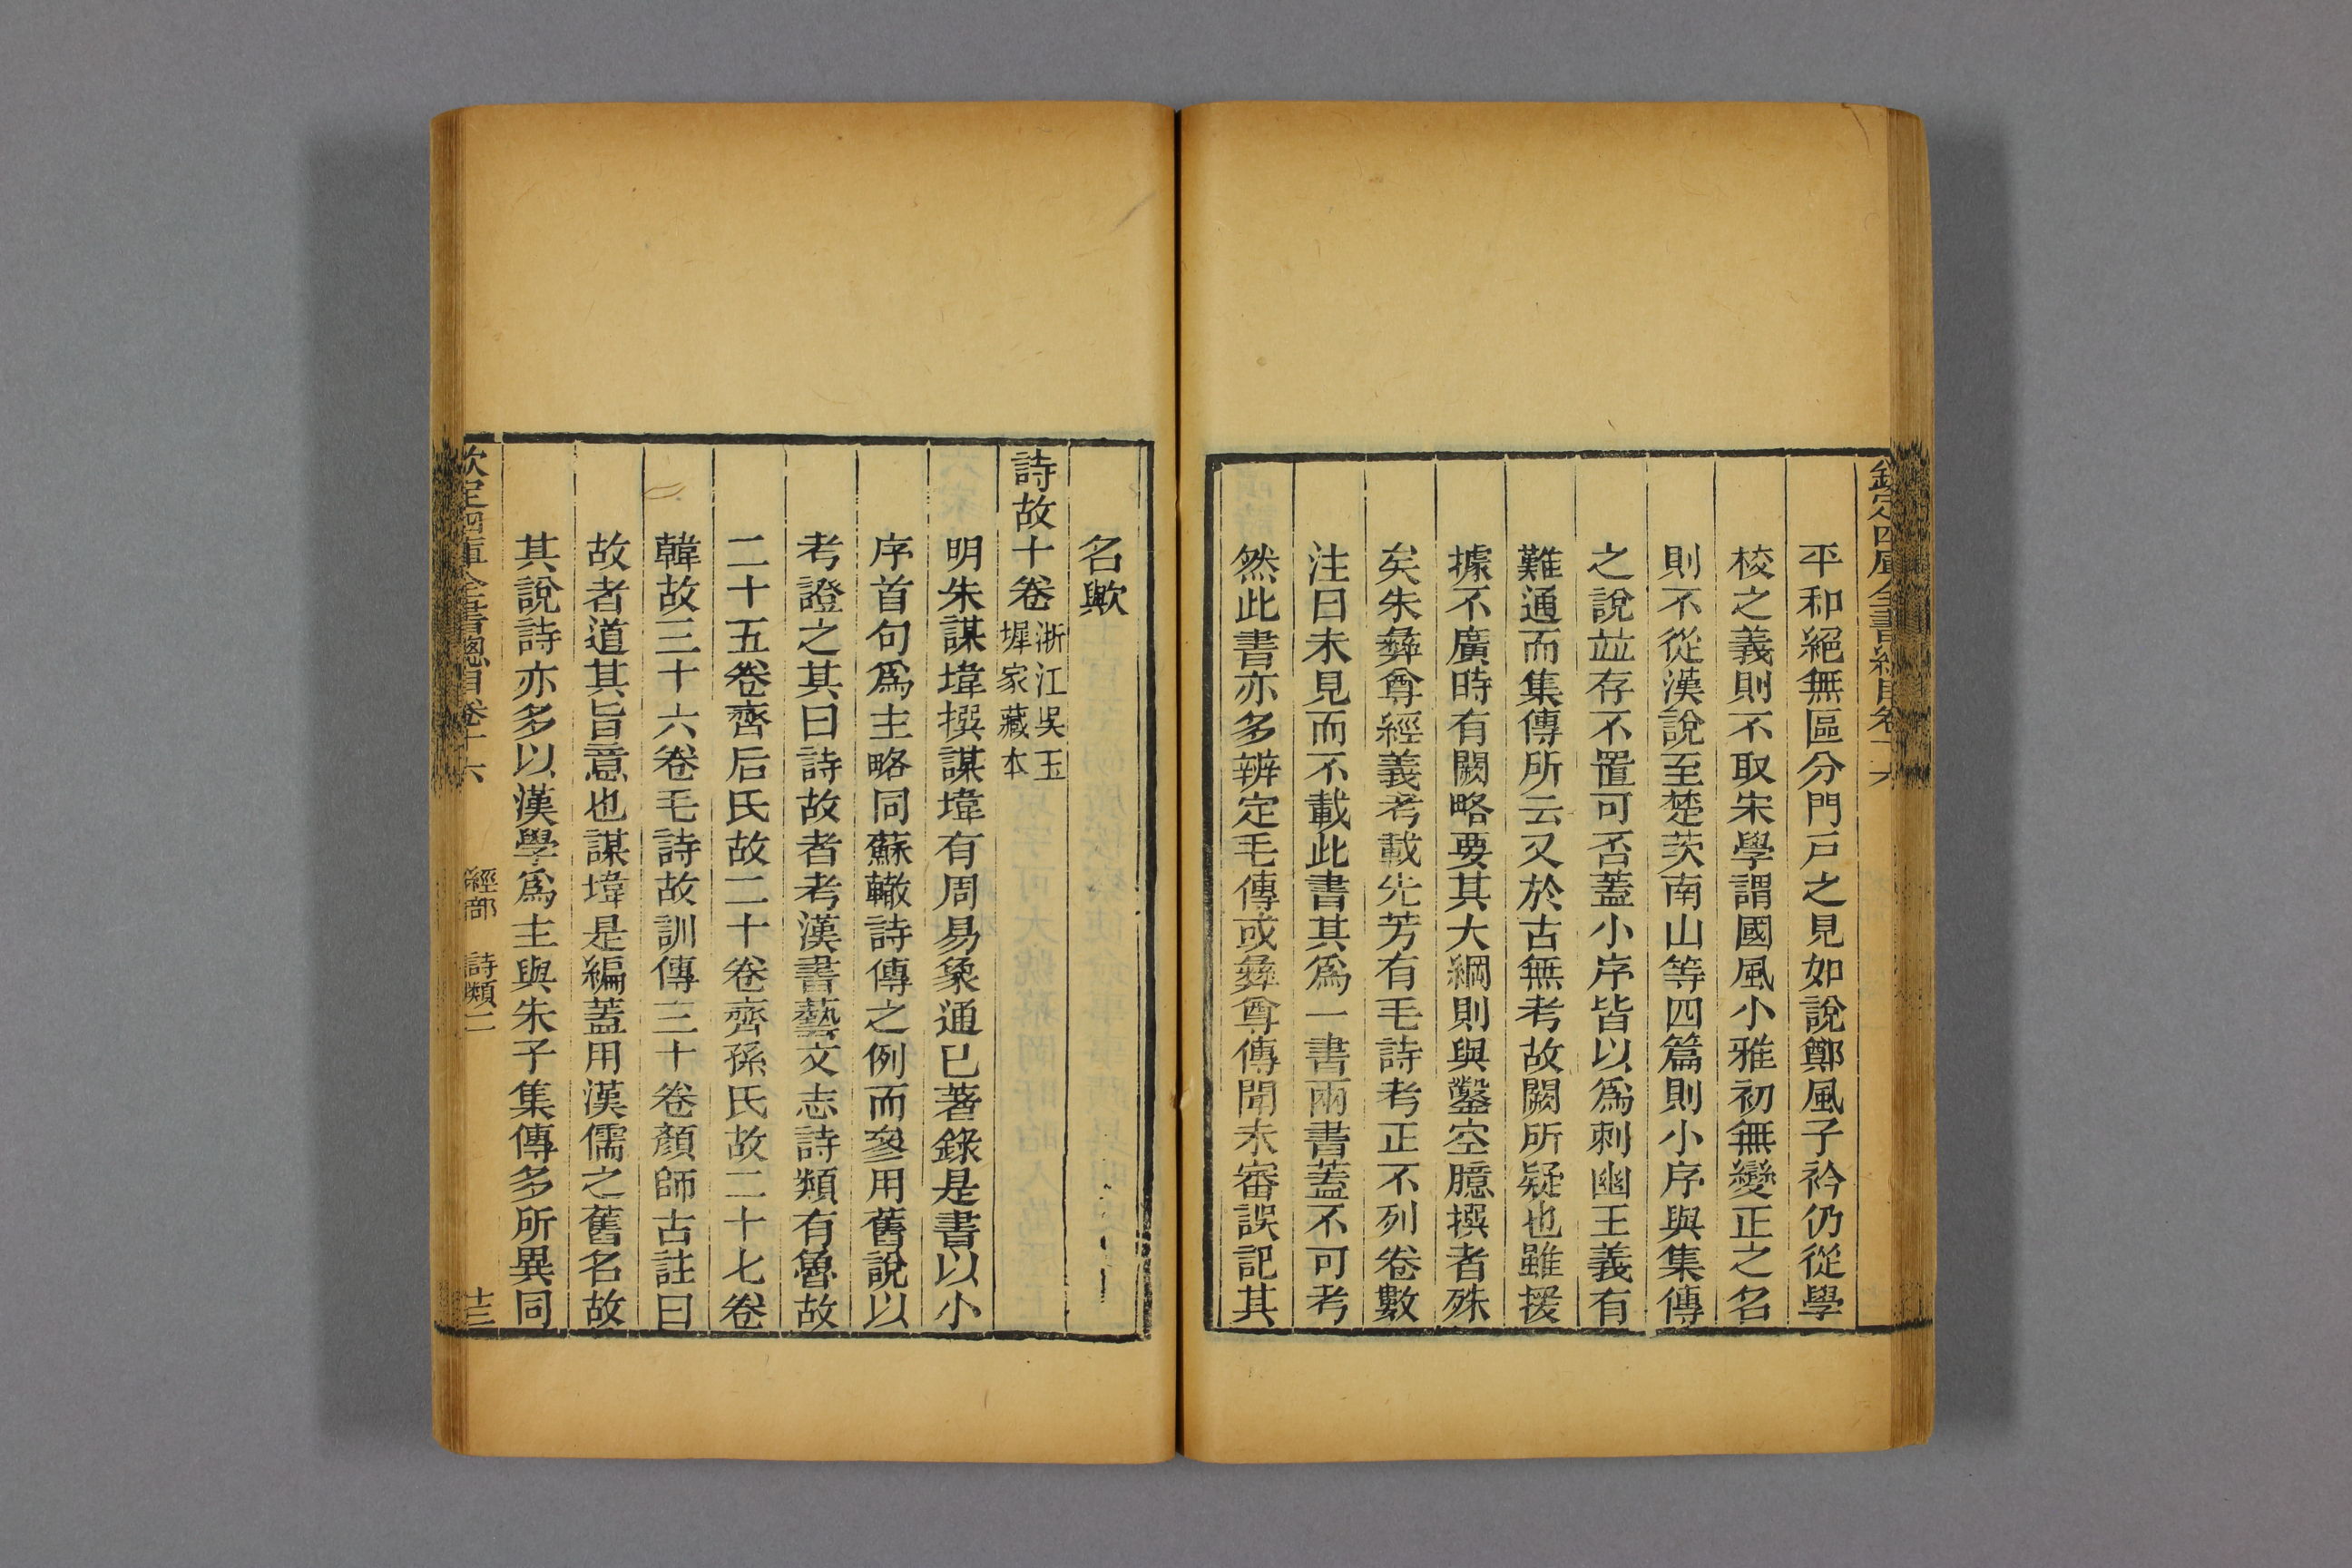 欽定四庫全書總目卷十六
平和絕無區分門戶之見如說鄭風子衿仍從學
校之義則不取宋學謂國風小雅初無變正之名
則不從漢說至楚茨南山等四篇則小序與集傳
之說竝存不置可否蓋小序皆以爲刺幽王義有
難通而集傳所云又於古無考故闕所疑也雖援
據不廣時有闕略要其大綱則與鑿空臆撰者殊
矣朱彝尊經義考載先芳有毛詩考正不列卷數
注曰未見而不載此書其爲一書兩書蓋不可考
然此書亦多辨定毛傳或彝尊傳聞未審誤記其
名歟
詩故十卷 浙江吳玉
墀家藏本
明朱謀㙔撰謀㙔有周易象通已著錄是書以小
序首句爲主略同蘇轍詩傳之例而參用舊說以
考證之其曰詩故者考漢書藝文志詩類有魯故
二十五卷齊后氏故二十卷齊孫氏故二十七卷
韓故三十六卷毛詩故訓傳三十卷顏師古註曰
故者道其旨意也謀㙔是編蓋用漢儒之舊名故
其說詩亦多以漢學爲主與朱子集傳多所異同
欽定四庫全書總目卷十六 經部 詩類二 十三